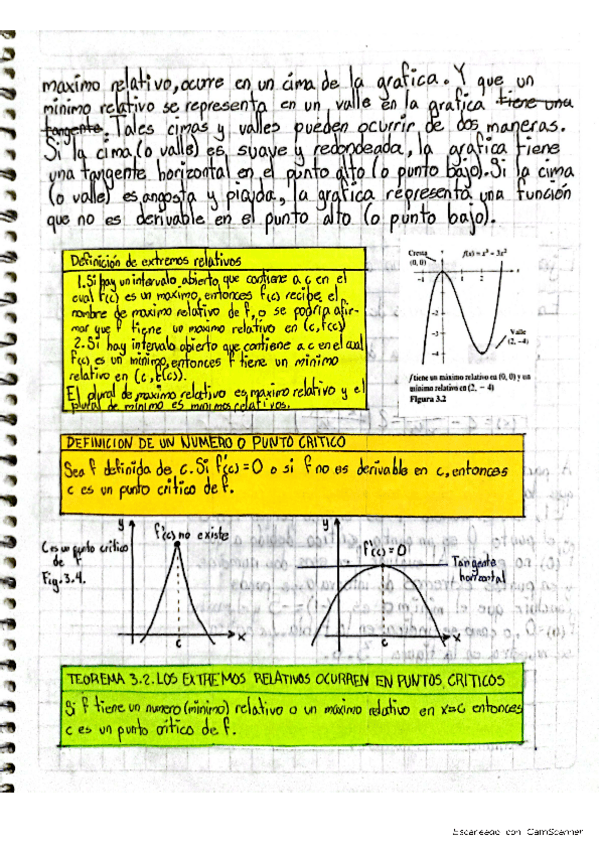 maximo relativo, ocurre en un cima de la grafica. Y que un
minimo relativo se representa en un valle en la grafica tiene una
tangente. Tales cimas y valles pueden ocurrir de dos maneras.
Si la cima (o valle) es suave y redondeada, la grafica tiene
una tangente horizontal en el punto alto (o punto bajo). Si la cima
(o valle) es angosta y picuda, la grafica representa una función
que no es derivable en el punto alto (o punto bajo).
Definición de extremos relativos
1. Si hay un intervalo abierto que contiene a c en el
cual f(c) es un maximo, entonces f(c) recibe el
nombre de maximo relativo de f, o se podria afir-
mar que f tiene un maximo relativo en (c, f(c))
2. Si hay intervalo abierto que contiene a c en el cual
f(c) es un minimo, entonces f tiene un minimo
relativo en (c, f(c)).
El plural de maximo relativo es maximo relativo y el
plural de minimo es minimos relativos.
Cresta
(0, 0)
f(x) = x³ − 3x²
-1
1
2
-2
-3
-4
Valle
(2, −4)
f tiene un máximo relativo en (0, 0) y un
mínimo relativo en (2, − 4)
Figura 3.2
DEFINICION DE UN NUMERO O PUNTO CRITICO
Sea f definida de c. Si f'(c) = 0 o si f no es derivable en c, entonces
c es un punto critico de f.
C es un punto critico
de f
Fig. 3.4.
y
f'(c) no existe
c
x
y
f'(c) = 0
Tangente
horizontal
c
x
TEOREMA 3.2. LOS EXTREMOS RELATIVOS OCURREN EN PUNTOS CRITICOS
Si f tiene un numero (minimo) relativo o un máximo relativo en x=c entonces
c es un punto critico de f.
Escaneado con CamScanner